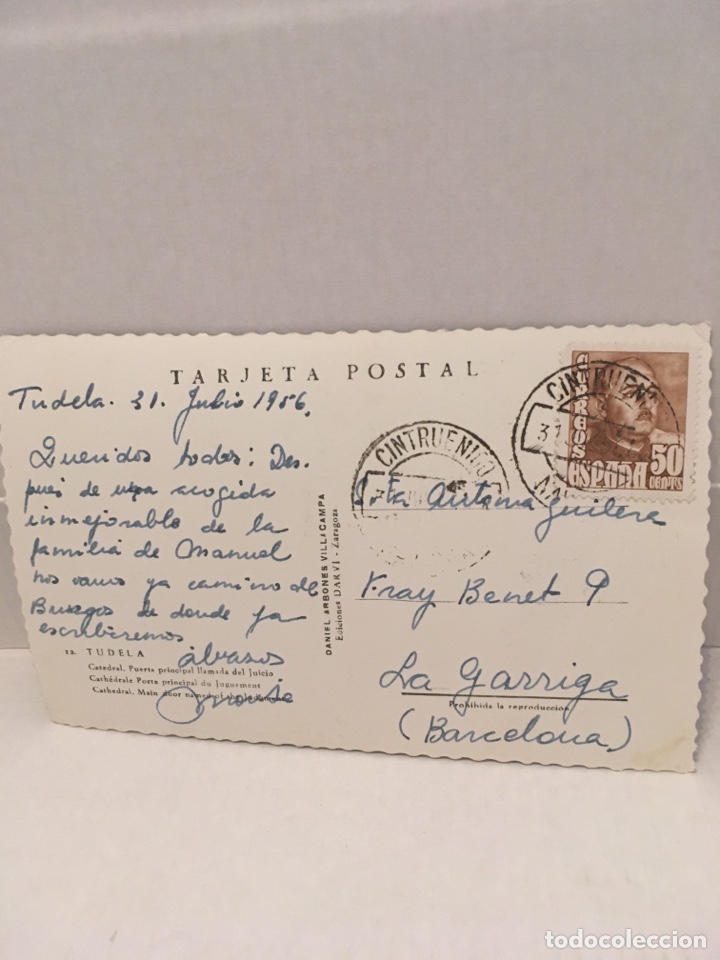 TARJETA POSTAL
Tudela. 31. Julio 1956.
Queridos todos: Des-
pués de una acogida
inmejorable de la
familia de Manuel
nos vamos ya camino de
Burgos de donde ya
escribiremos
abrazos
12. TUDELA
Catedral. Puerta principal llamada del Juicio
Cathédrale Porte principal du Jugement
Cathedral. Main door named of the
DANIEL ARBONES VILLACAMPA
Ediciones DARVI - Zaragoza
CINTRUENIGO
CINTRUENI
31
CORREOS
ESPAÑA
50
CENTS
Srta Antonia Aguilera
Fray Benet 9
La Garriga
Prohibida la reproducción
(Barcelona)
todocoleccion